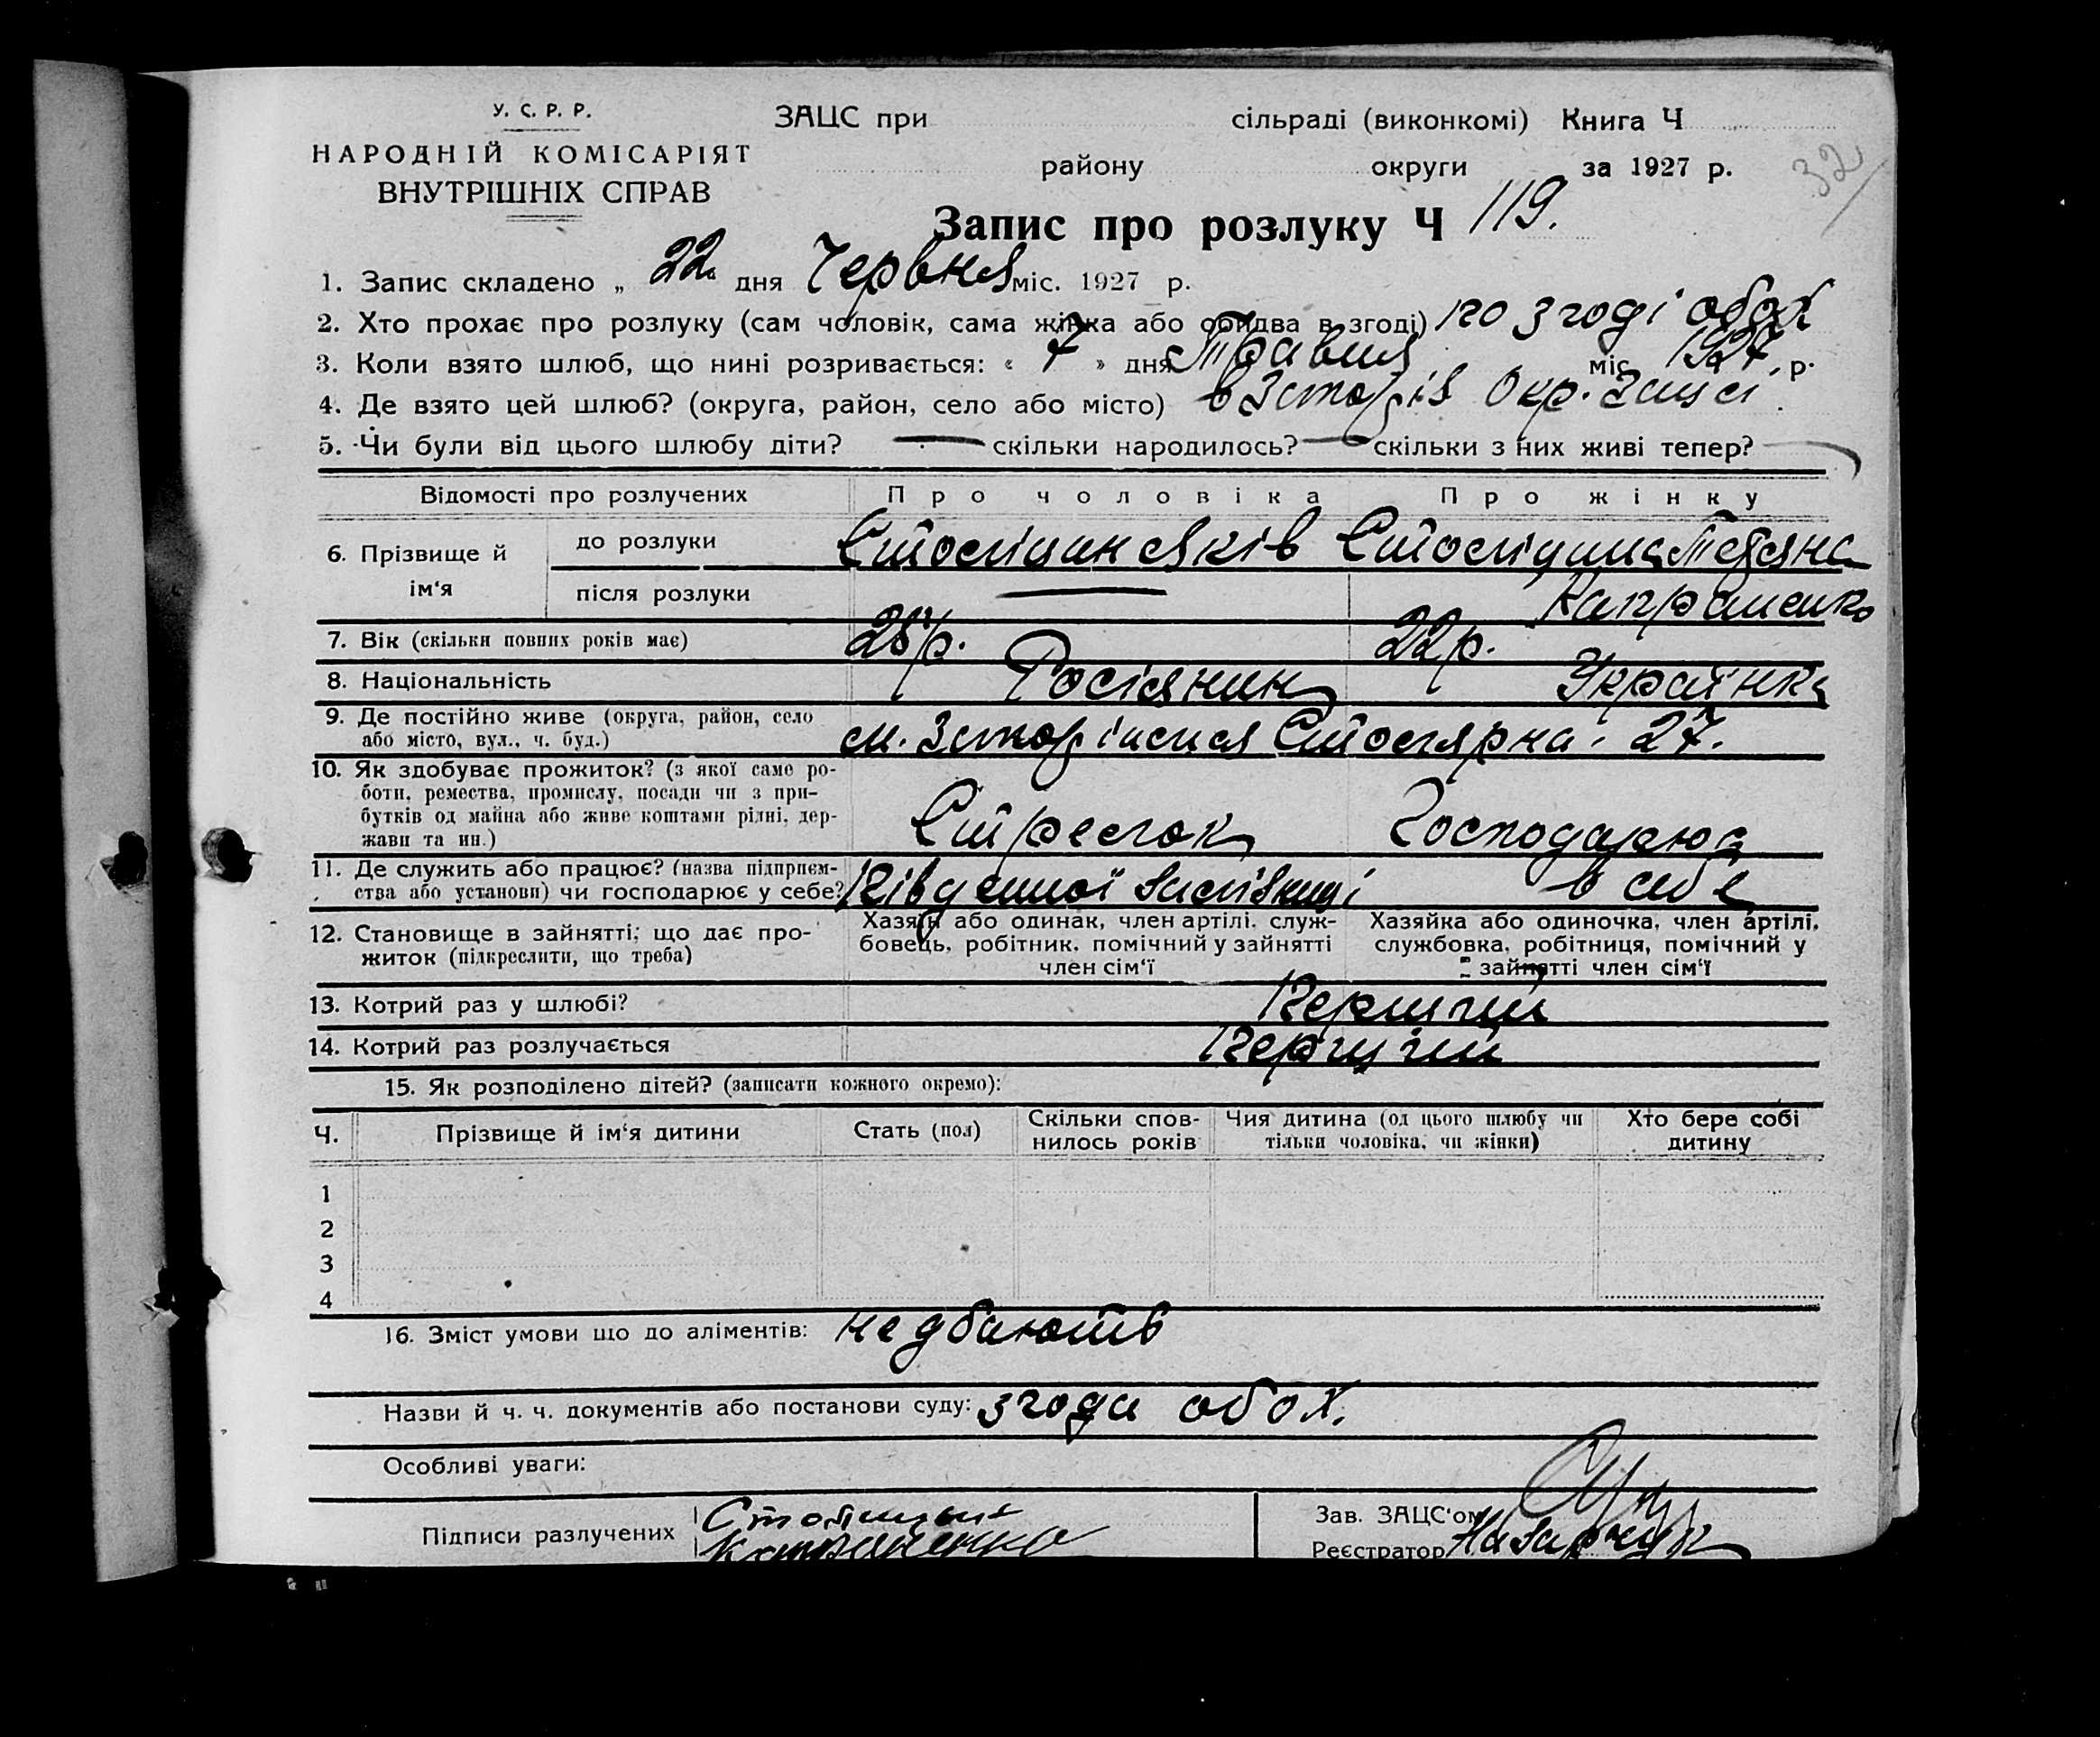 У. С. Р. Р.
НАРОДНІЙ КОМІСАРІЯТ
ВНУТРІШНІХ СПРАВ
ЗАЦС при сільраді (виконкомі) Книга Ч
району округи за 1927 р.
32
Запис про розлуку Ч 119.
1. Запис складено „ 22 дня Червня міс. 1927 р.
2. Хто прохає про розлуку (сам чоловік, сама жінка або обидва в згоді) по згоді обох
3. Коли взято шлюб, що нині розривається: « 7 » дня Травня міс. 1927 р.
4. Де взято цей шлюб? (округа, район, село або місто) в Запоріж Окр. Зацсі
5. Чи були від цього шлюбу діти? — скільки народилось? — скільки з них живі тепер? —
Відомості про розлучених Про чоловіка Про жінку
6. Прізвище й ім‘я до розлуки Яків Тетяна
після розлуки — Капраненко
7. Вік (скільки повних років має) 22 р.
8. Національність Росіянин Українка
9. Де постійно живе (округа, район, село
або місто, вул., ч. буд.) м. Столярна 27.
10. Як здобуває прожиток? (з якої саме ро-
боти, ремества, промислу, посади чи з при-
бутків од майна або живе коштами рідні, дер-
жави та ин.) Стрелок Господарює
11. Де служить або працює? (назва підприєм-
ства або установи) чи господарює у себе? Південної Залізниці в себе
12. Становище в зайнятті; що дає про-
житок (підкреслити, що треба)
Хазяїн або одинак, член артілі, служ-
бовець, робітник, помічний у зайнятті
член сім‘ї
Хазяйка або одиночка, член артілі,
службовка, робітниця, помічний у
зайнятті член сім‘ї
13. Котрий раз у шлюбі? Перший
14. Котрий раз розлучається Перший
15. Як розподілено дітей? (записати кожного окремо):
Ч. Прізвище й ім‘я дитини Стать (пол) Скільки спов-
нилось років Чия дитина (од цього шлюбу чи
тільки чоловіка, чи жінки) Хто бере собі
дитину
1
2
3
4
16. Зміст умови що до аліментів: не дбають
Назви й ч. ч. документів або постанови суду: згода обох.
Особливі уваги:
Підписи разлучених
Капраненко
Зав. ЗАЦС'ом
Реєстратор Назарчук